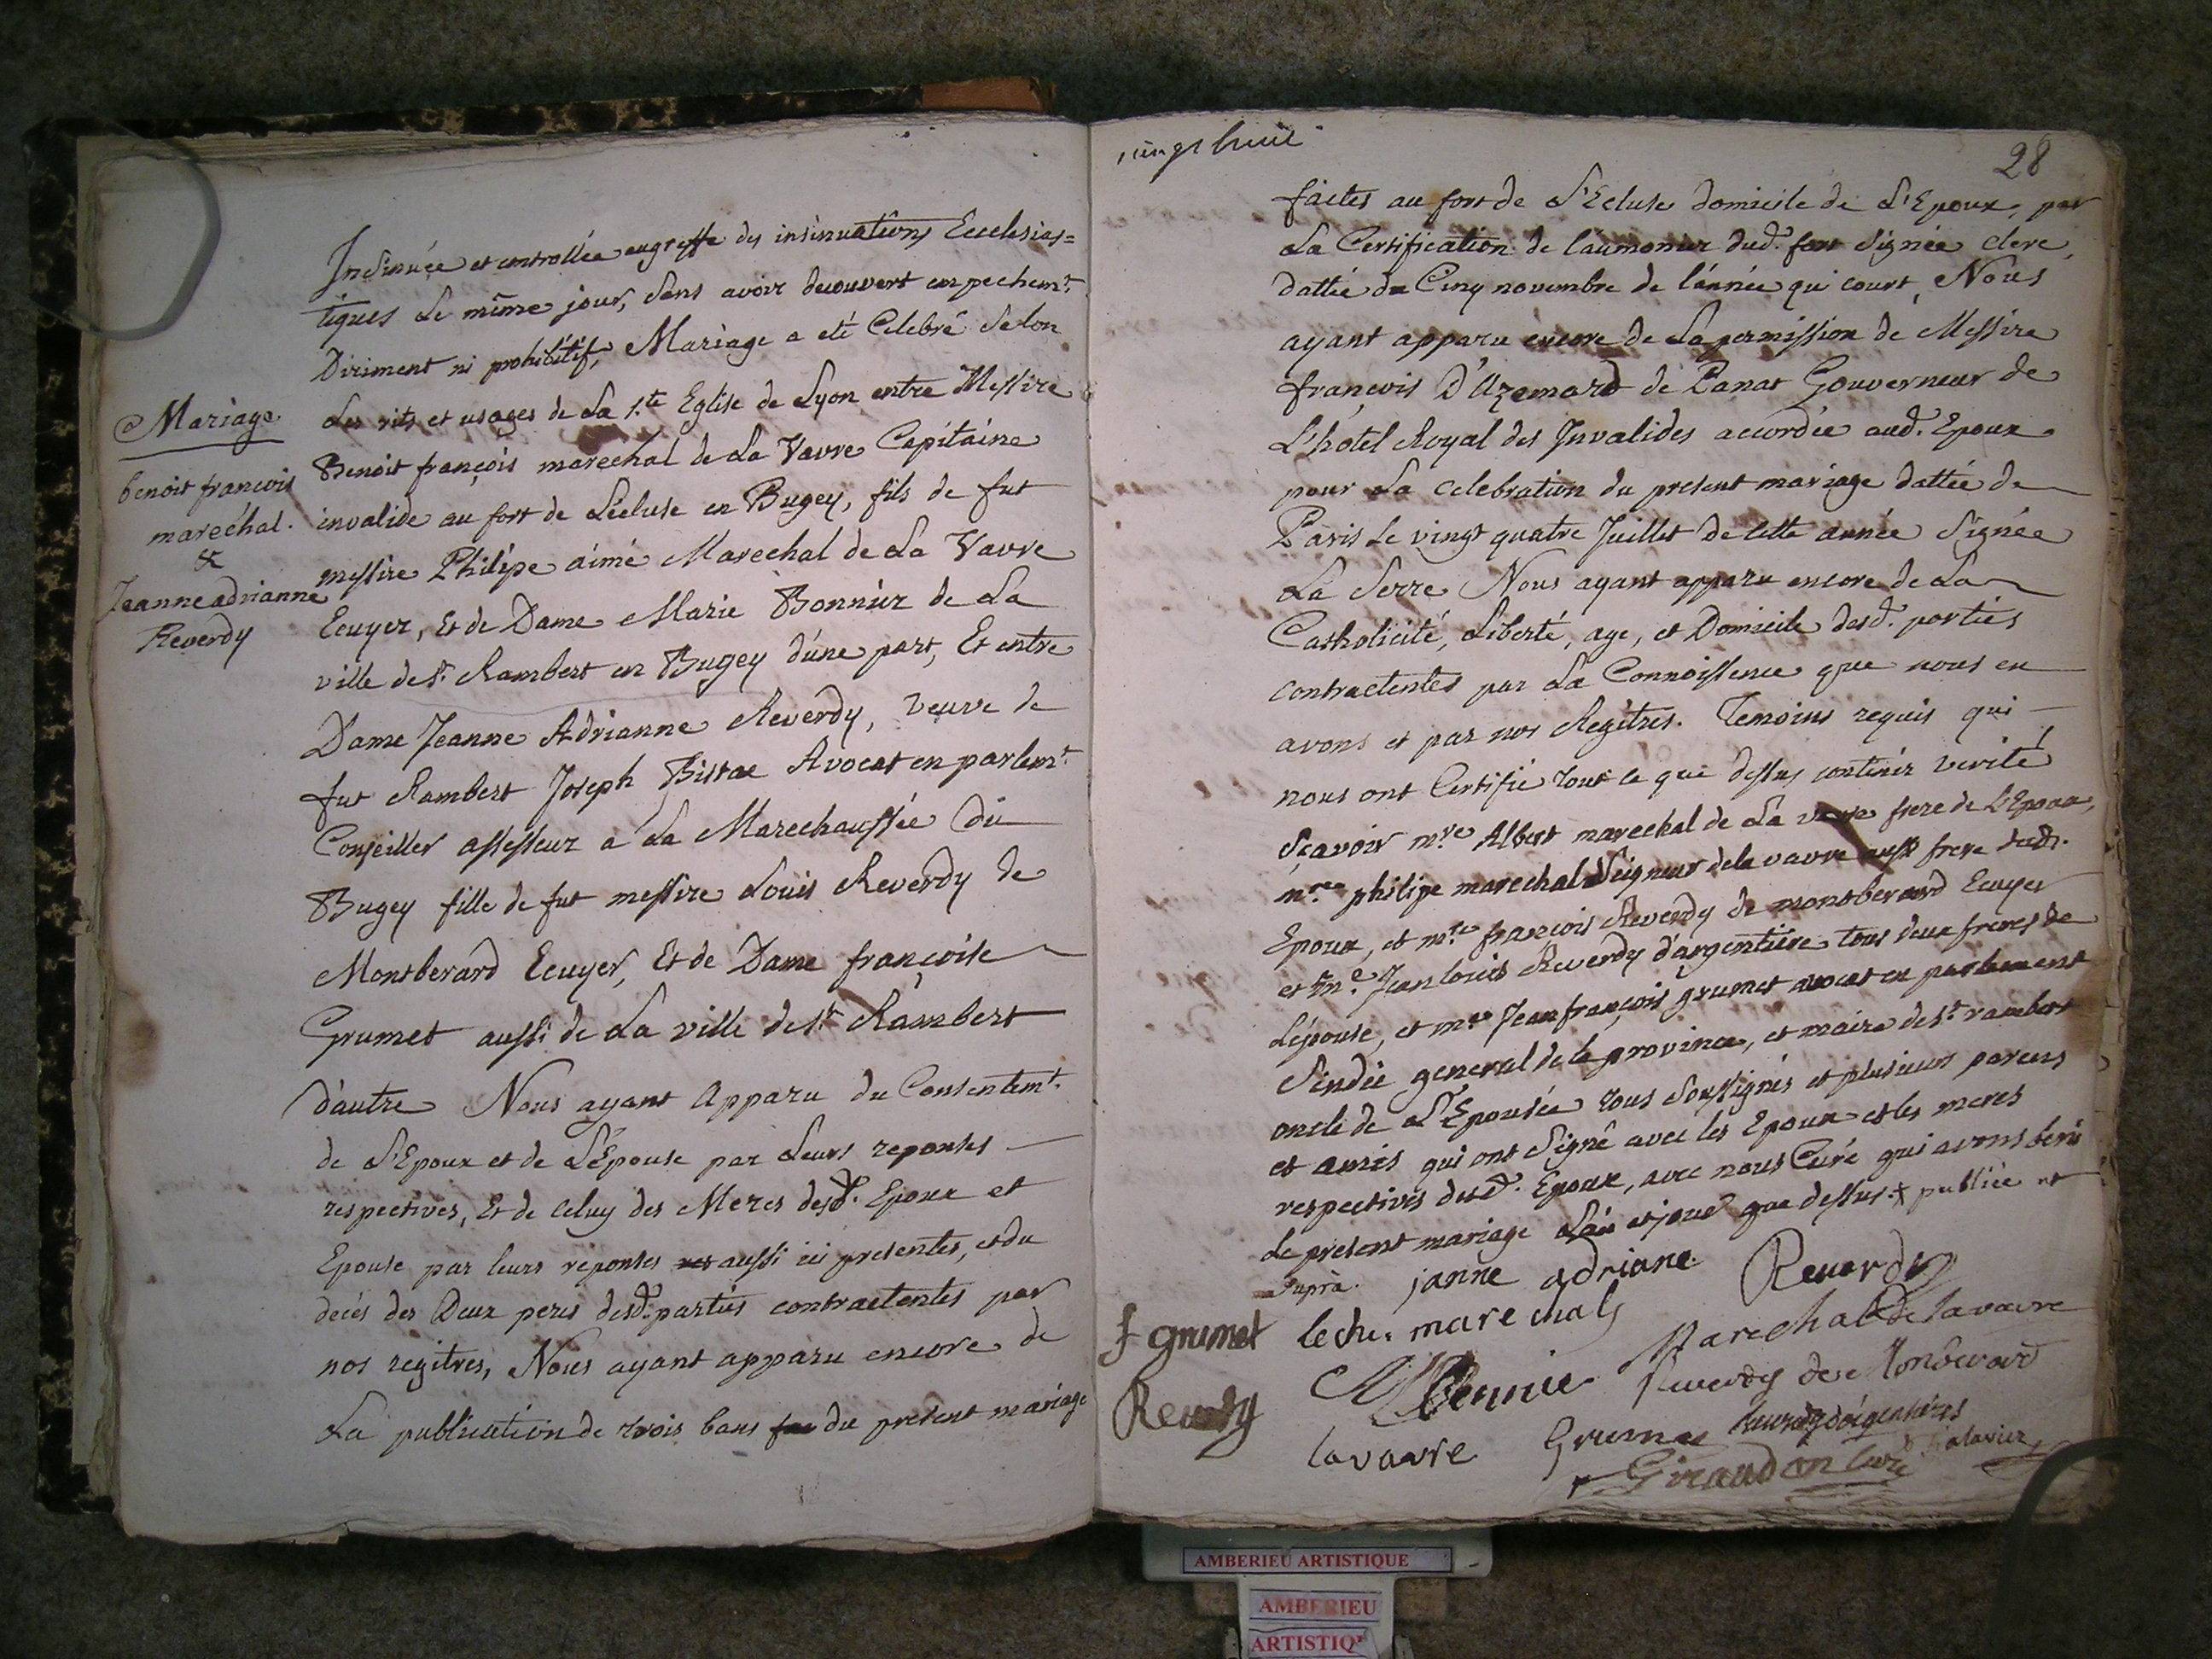 Mariage
benoit francois
maréchal.
&
Jeanne adrianne
Reverdy
Insinuée et controllée au greffe des insinuations Ecclesias=
tiques Le même jour, sans avoir decouvert empechemt.
Diriment ni prohibitif, Mariage a eté Celebré Selon
Les rits et usages de La Ste. Eglise de Lyon entre Messire
Benoit françois marechal de La Vavre Capitaine
invalide au fort de L'ecluse en Bugey, fils de fut
messire Philipe aimé Marechal de La Vavre
Ecuyer, Et de Dame Marie Bonnier de La
ville de St. Rambert en Bugey d'une part, Et entre
Dame Jeanne Adrianne Reverdy, veuve de
fut Rambert Joseph Bistac Avocat en parlemt.
Conseiller assesseur a La Marechaussée du
Bugey fille de fut messire Louis Reverdy de
Montberard Ecuyer, Et de Dame françoise
Grumet aussi de La ville de St. Rambert
d'autre Nous ayant Apparu du Consentemt.
de L'Epoux et de L'Epouse par Leurs reponses
respectives, Et de celuy des Meres desd. Epoux et
Epouse par leurs reponses aussi ici presentes, et du
decés des Deux peres desd. parties contractentes par
nos regitres, Nous ayant apparu encore de
La publication de trois bans du present mariage
vingt huit
28
faites au fort de L'Ecluse domicile de L'Epoux, par
La Certification de l'aumonier dud. fort Signée clerc,
dattée du Cinq novembre de l'année qui court, Nous
ayant apparu encore de La permission de Messire
françois D'Azemard de Panat Gouverneur de
L'hôtel Royal des Invalides accordée aud. Epoux
pour La Celebration du present mariage dattée de
Paris Le vingt quatre Juillet de cette année Signée
La Serre Nous ayant apparu encore de La
Catholicité, Liberté, age, et Domicile desd. parties
contractentes par La Connoissence que nous en
avons et par nos Regitres. Temoins requis qui
nous ont Certifié tout ce que dessus contenir verité
Sçavoir mre Albert marechal de La vavre frere de L'Epoux,
mre philipe marechal Seigneur de la vavre aussi frere dud.
Epoux, et mre françois Reverdy de montberard Ecuyer
et me. Jean louis Reverdy d'argentiere tous deux freres de
L'épouse, et me Jean françois grumet avocat en parlement
Sindic general de la province, et maire de St. rambert
oncle de L'Epousée tous Soussignés et plusieurs parens
et amis qui ont Signé avec les Epoux et les meres
respectives desd. Epoux, avec nous Curé qui avons beni
Le present mariage L'an et jour que dessus. + publiée ut
supra. janne adriane Reverdy
f grumet le che. marechal
Marechal de lavavre
Reverdy Bonnier Reverdy de Monberard
lavavre Grumet Reverdy dargentieres
Giraud curé